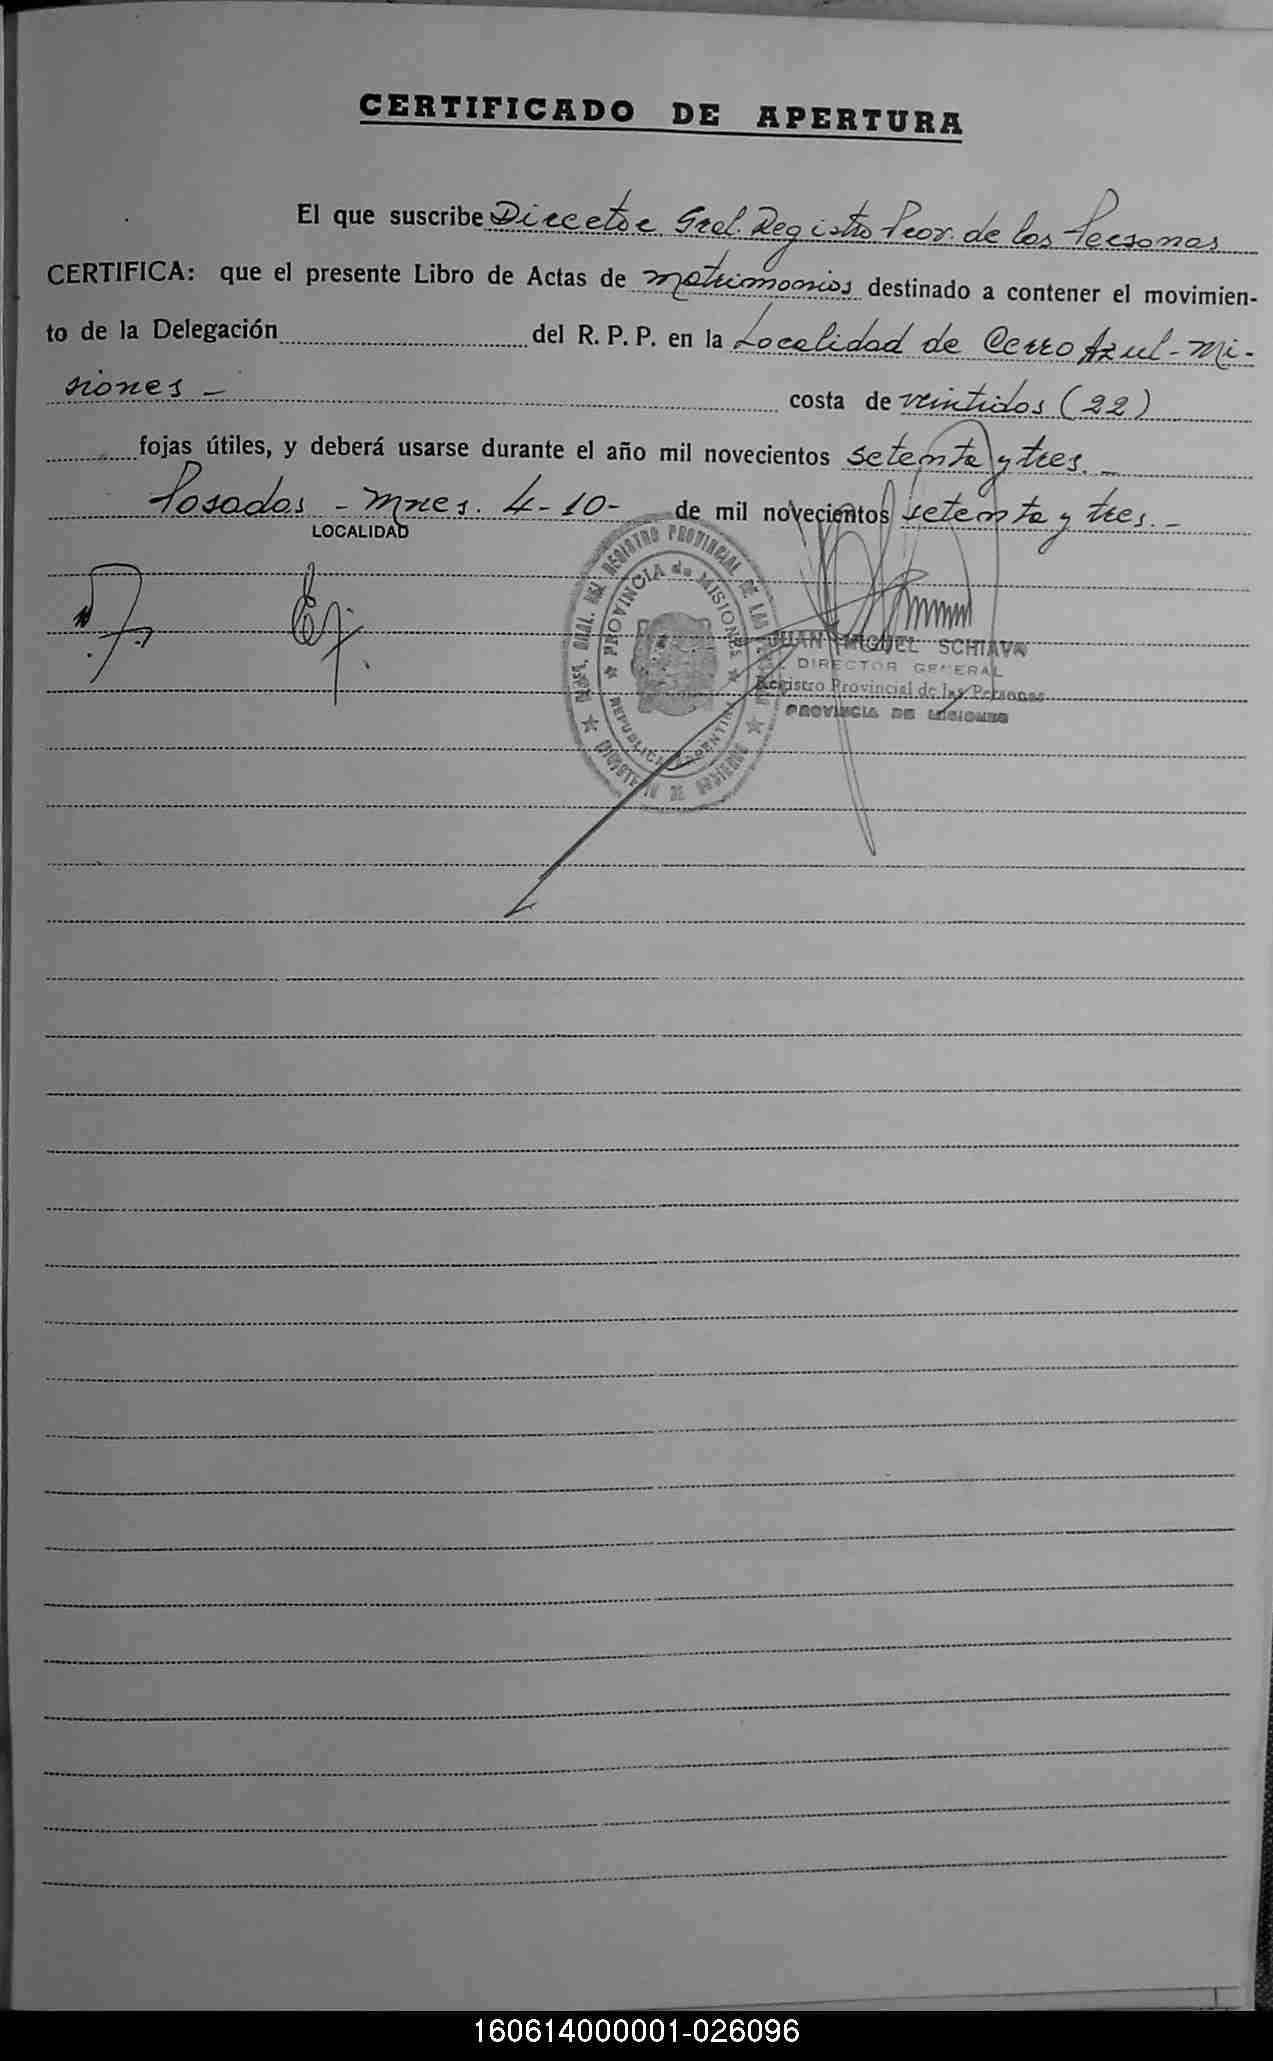 CERTIFICADO DE APERTURA
El que suscribe Director Gral. Registro Prov. de las Personas
CERTIFICA: que el presente Libro de Actas de matrimonios destinado a contener el movimien-
to de la Delegación del R. P. P. en la Localidad de Cerro Azul - Mi-
siones - costa de veintidos (22)
fojas útiles, y deberá usarse durante el año mil novecientos setenta y tres. -
Posadas - Mnes. 4-10- de mil novecientos setenta y tres. -
LOCALIDAD
DEL REGISTRO PROVINCIAL DE LAS
PROVINCIA de MISIONES
REPUBLICA ARGENTINA
MINISTERIO DE GOBIERNO
JUAN MIGUEL SCHIAVA
DIRECTOR GENERAL
Registro Provincial de las Personas
PROVINCIA DE MISIONES
160614000001-026096